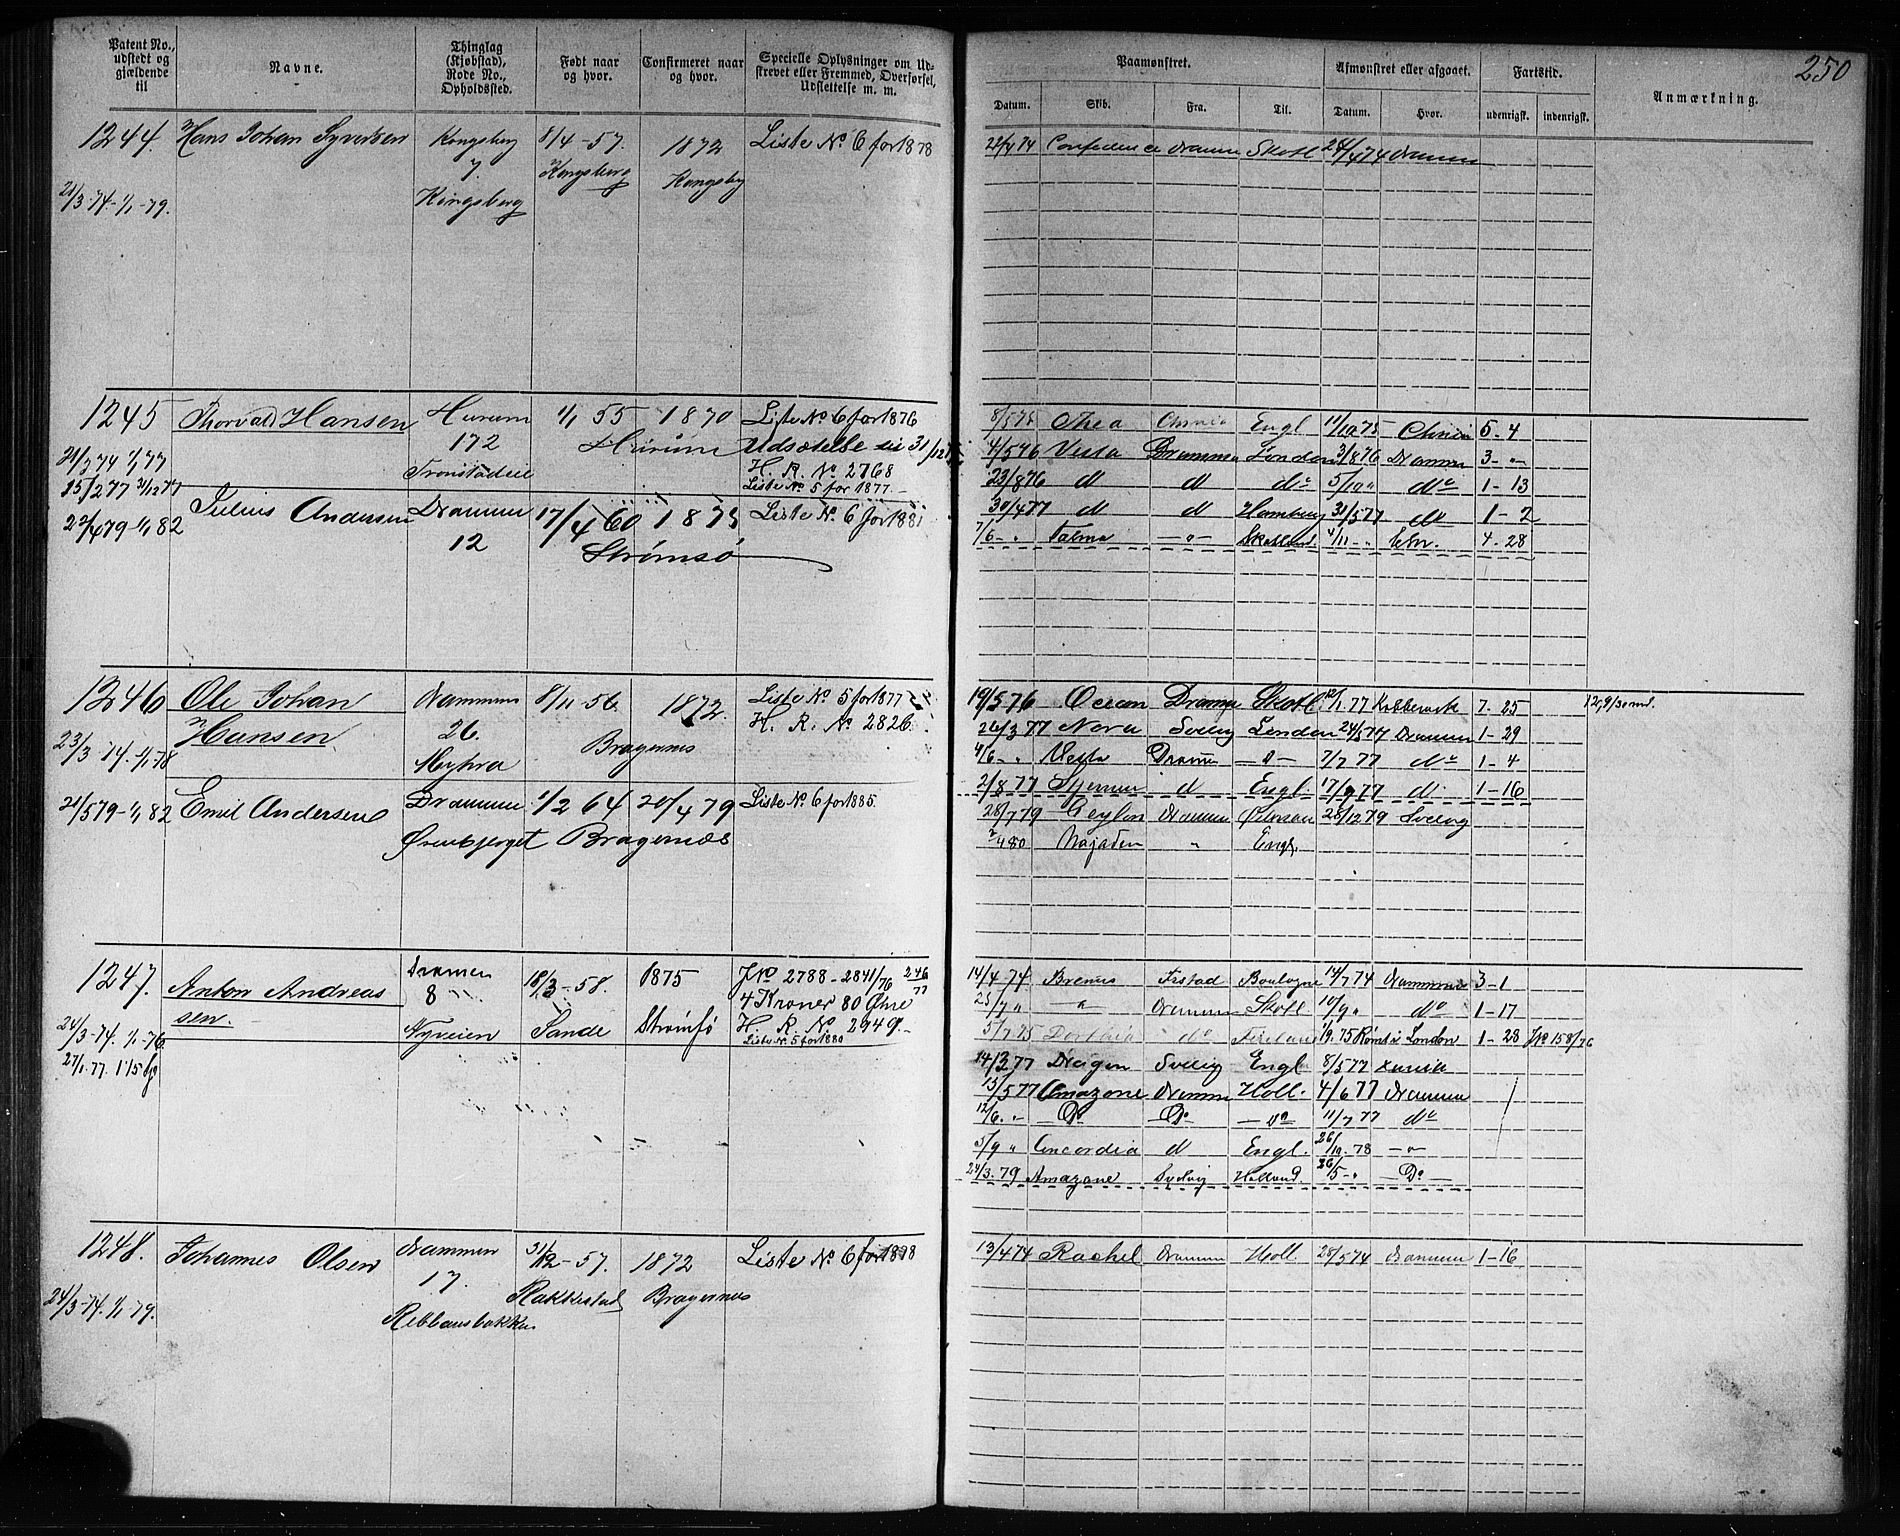 250
Patent No., udstedt og gjældende til
Navne.
Thinglag (Kjøbstad), Rode No., Opholdssted.
Født naar og hvor.
Confirmeret naar og hvor.
Specielle Oplysninger om Udskrevet eller Fremmed, Overførsel, Udslettelse m. m.
Paamønstret.
Afmønstret eller afgaaet.
Fartstid.
Anmærkning.
Datum. Skib. Fra. Til. Datum. Hvor. udenrigsk. indenrigsk.
1244. Hans Johan Syversen Kongsberg 8/4-57. 1872 Liste No 6 for 1878
7. Kongsberg Kongsberg
21/3-74-1/1-79. Kongsberg
22/4 74 Confidence Dramm Skotl 24/4 74 Dramm
1245 Thorvald Hansen Hurum 1/1 55 1870 Liste No 6 for 1876
172 Hurum Udsættelse til 31/12
21/3 74 1/1 77 H. R. No 2768
15/2 77 31/12 77 Liste No 5 for 1877.
Julius Andersen Drammen 17/4 60 1875 Liste No 6 for 1881
12 Strømsø
8/5 75 Thea Chrnia Engl 11/10 75 Chrnia 5-4
4/5 76 Vesta Drammen London 3/8 76 Drammen 3-"
23/8 76 do do do 5/10 " do 1-13
30/4 77 do do Hamburg 31/5 77 do 1-2
7/6-" -"- Skotland. 4/11-" 4-28
1246 Ole Johan Drammen 8/11-56. 1872. Liste No 5 for 1877
Hansen 26. H. R. No 2826.
23/3-74.-1/1-78 Myhra Bragernes
21/5 79-1/1 82 Emil Andersen Drammen 1/2 64 20/4 79 Liste No 6 for 1885.
Ørenbjerget Bragernæs
19/5 76 Ocean Dramm Skotl. 1/77 7-25
26/3 77 Nora Svelvig London 24/5 77 Drammen 1-29
4/6-" Vesta Dramm -"- 7/7 77 do 1-4
2/8 77 Stjernen do Engl. 17/9 77 do 1-16
28/7 79 Ceylon Drammen 28/12 79 Svelvig
480 Najaden " Engl.
1247. Anton Andreas Dramen 18/3-58. 1875 J No 2788-2841/76 246/77
sen. 8 4 Kroner 80 Øre
24/3-74. 1/1-76 Nyveien Sande Strømsø H. R. No 2949.-
27/1-77. Liste No 5 for 1880
14/4 74 Brenus Frstad Boulogne 14/7 74 Drammen 3-1
25/7 " -"- Drammen Skotl 10/9 " do 1-17
5/7 75 do 1/9 75 Rømt i London 1-28 J No 158/76
14/3 77 Dragen Svelvig Engl. 8/5 77
13/5 77 Amazone Dramm Holl. 4/6 77 Drammen
12/6.-" Do Do -do 11/7 77 do
5/9 " Concordia do Engl. 26/10.78 -"-
24/3.79 Amazone Svelvig Holland. 26/5-" -Do-
1248. Johannes Olsen Drammen 31/12-57. 1872 Liste No 6 for 1878
17. Rakkestad Bragernes
24/3-74. 1/1-79. Ribbansbakken
13/4 74 Rachel Drammen Holl 28/5 74 Drammen 1-16